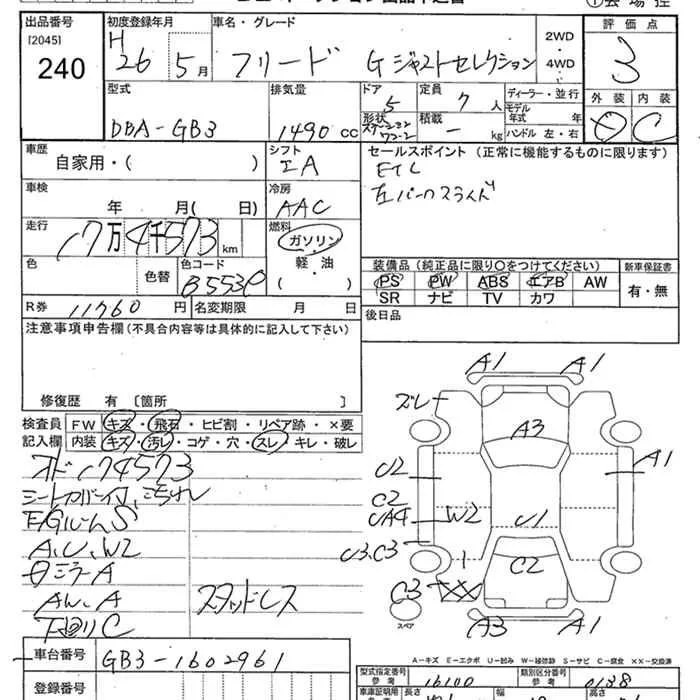 出品番号
[2045]
240
初度登録年月
H
26 5月
車名・グレード
フリード Gジャストセレクション
2WD
・
4WD
評価点
3
外装 内装
C
型式
DBA-GB3
排気量
1490 cc
ドア
5
形状
定員
7人
積載
- kg
ディーラー・並行
モデル
年式 年
ハンドル 左・右
車歴
自家用・( )
シフト
IA
セールスポイント(正常に機能するものに限ります)
左パワースライド
車検
年 月( 日)
冷房
AAC
走行
17万4千573km
燃料
ガソリン
・
軽・油
( )
色
色替
色コード
B553P
装備品(純正品に限り○をつけてください)
PS PW ABS エアB AW
SR ナビ TV カワ
新車保証書
有・無
R券 11760円
名変期限 月 日
後日品
注意事項申告欄(不具合内容等は具体的に記入して下さい)
修復歴 有 〔箇所 〕
検査員
記入欄
FW キズ・飛石・ヒビ割・リペア跡・×要
内装 キズ・汚レ・コゲ・穴・スレ・キレ・破レ
オド174573
E/GルームS
A,U,W2
AW.A
スタッドレス
下回りC
A1 A1
ズレー
A3
A1
U2
C2
UA4
W2
U1
U3.C3
C2
C3
XX
A3 A1
スペア
A-キズ E-エクボ U-凹み W-補修跡 S-サビ C-腐食 XX-交換済
車台番号 GB3-1602961
登録番号
型式指定番号
参考
16100
類別区分番号
参考
0138
車庫証明用
長さ
幅
高さ